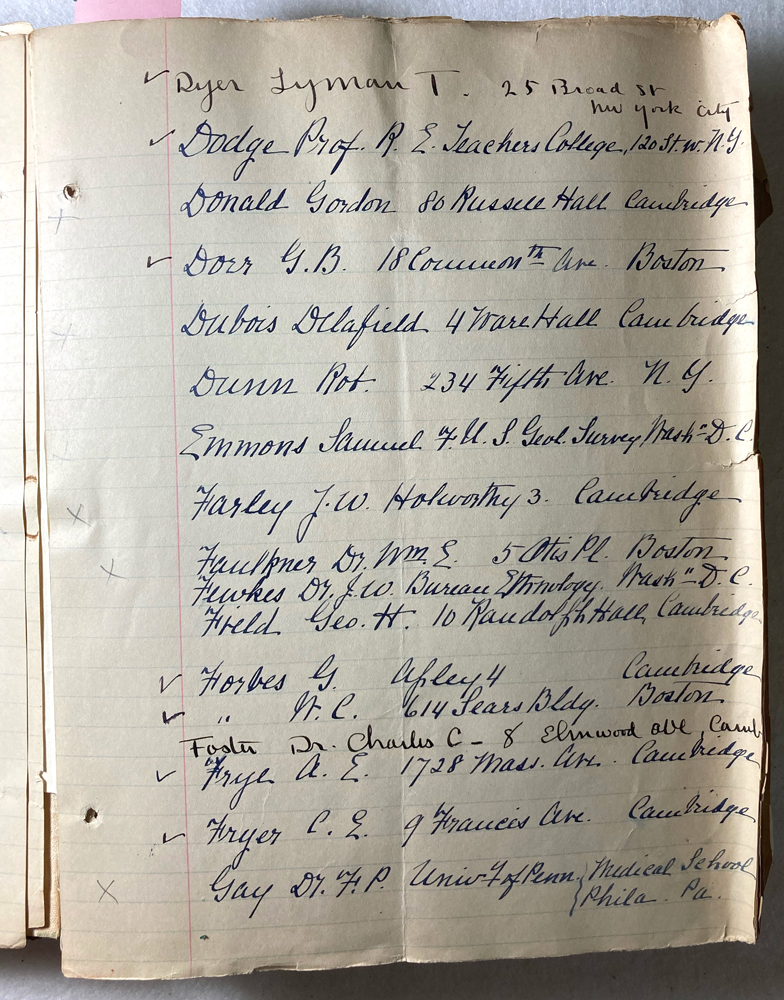 ✓ Dyer Lyman T. 25 Broad St
New York City
✓ Dodge Prof. R. E. Teachers College, 120 St. W. N.Y.
Donald Gordon 80 Russell Hall Cambridge
✓ Dorr G.B. 18 Common th Ave. Boston
Dubois Delafield 4 Ware Hall Cambridge
Dunn Rob. 234 Fifth Ave. N. Y.
Emmons Samuel F. U. S. Geol. Survey, Wash" D. C.
x Farley J. W. Holworthy 3. Cambridge
x Faulkner Dr. Wm. E. 5 Otis Pl. Boston
Fewkes Dr. J. W. Bureau Ethnology. Wash" D. C.
Field Geo. H. 10 Randolph Hall, Cambridge
✓ Forbes G. Apley 4 Cambridge
✓ " W. C. 614 Sears Bldg. Boston
Foster Dr. Charles C - 8 Elmwood ave, Camb
✓ Frye A. E. 1728 Mass. Ave. Cambridge
✓ Fryer C. E. 9 Francis Ave. Cambridge
x Gay Dr. F. P. Univ. of Penn. { Medical School
Phila. Pa.